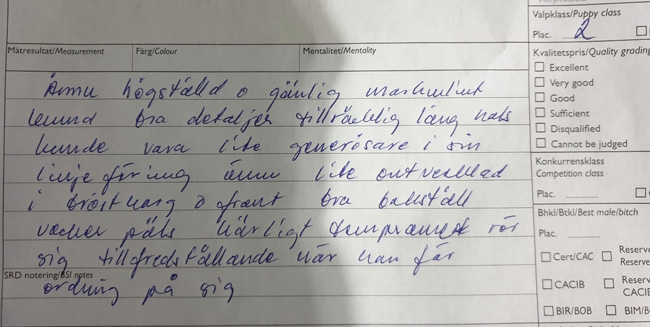 Valpklass/Puppy class
Plac. 2
Mätresultat/Measurement Färg/Colour Mentalitet/Mentality
Kvalitetspris/Quality grading
Excellent
Very good
Good
Sufficient
Disqualified
Cannot be judged
Ännu högställd o gänglig maskulint
huvud bra detaljer tillräcklig lång hals
kunde vara lite generösare i sin
linjeföring ännu lite outvecklad
i bröstkorg o front bra bakställ
vacker päls härligt temprament rör
sig tillfredställande när han får
ordning på sig
SRD notering/BSI notes
Konkurrensklass
Competition class
Plac.
Bhkl/Btkl/Best male/bitch
Plac.
Cert/CAC Reserv
Reserve
CACIB Reserv
CACIB
BIR/BOB BIM/B